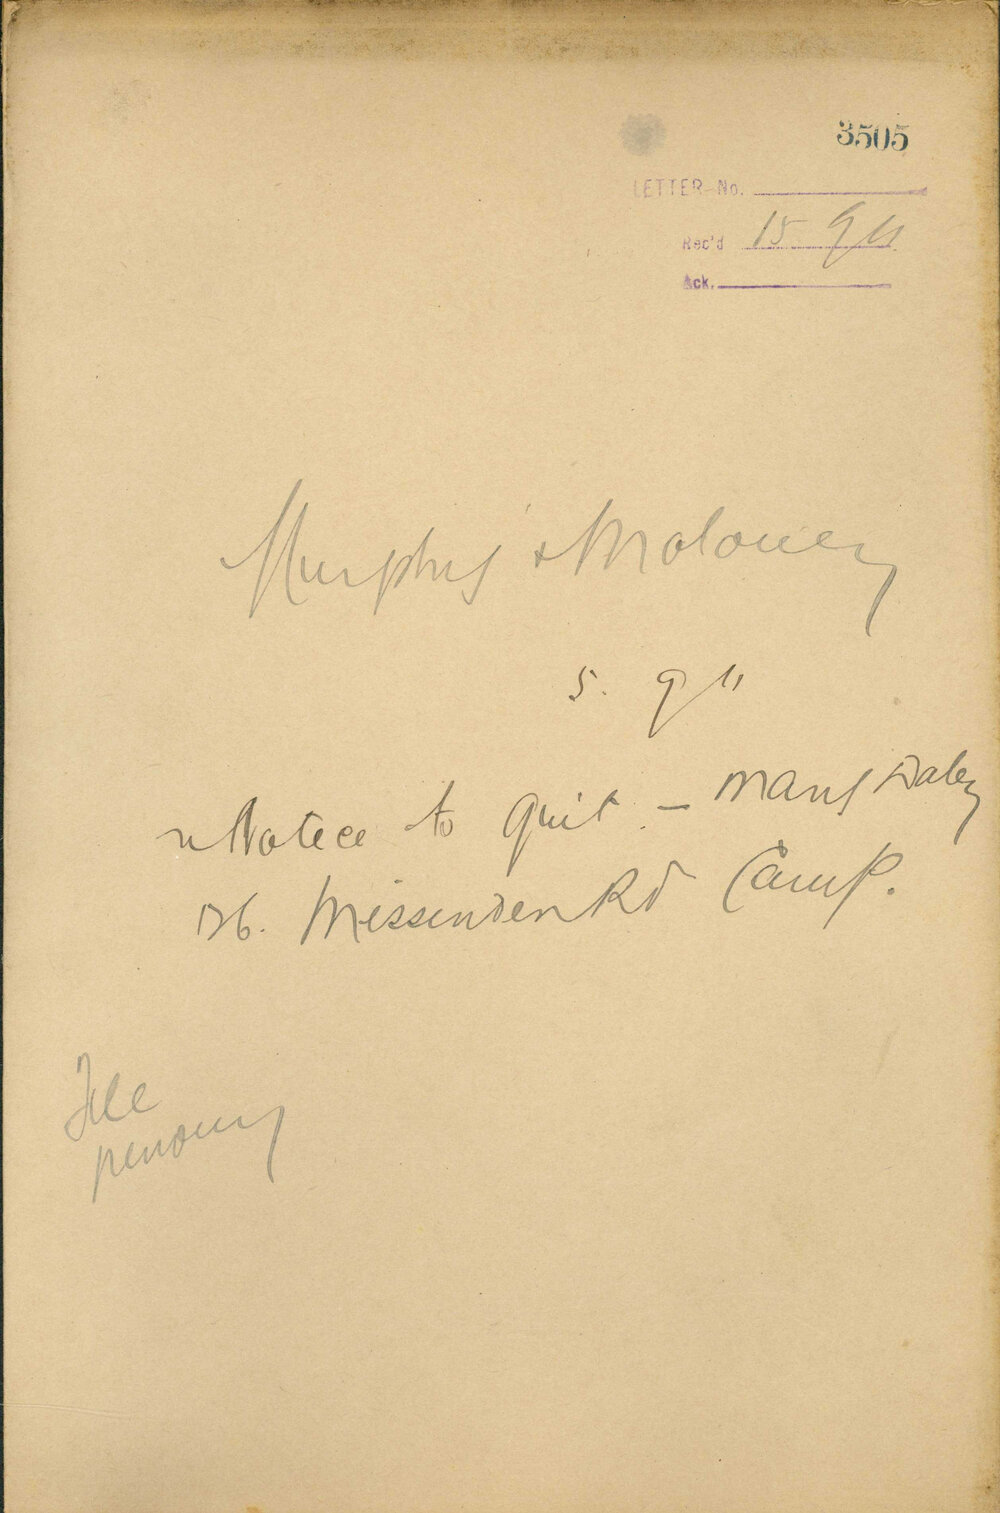 3505
LETTER No.
Rec'd 15 9 11
Ack.
Murphy & Moloney
5. 9 11
Notice to Quit. - Mary Daley
Missenden Rd Camp.
File